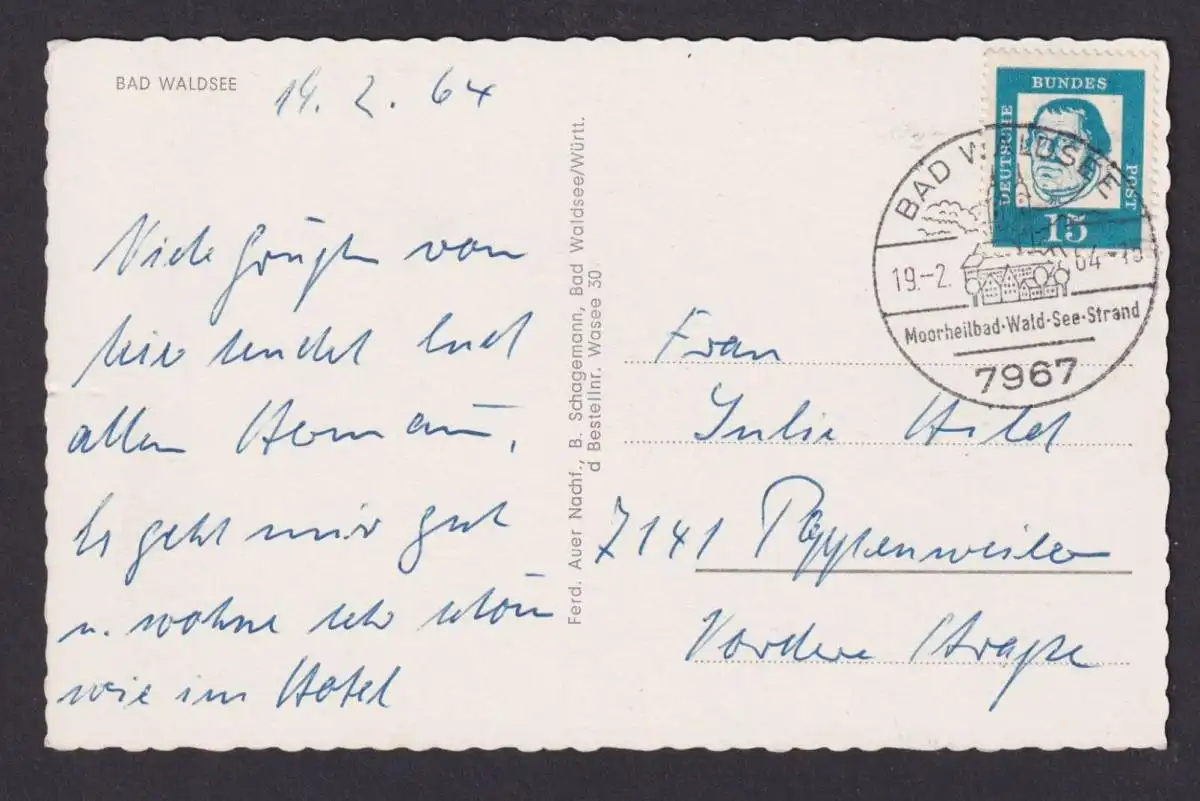 BAD WALDSEE
19. 2. 64
Viele Grüße von
hier sendet Euch
allen Hermann.
Es geht mir gut
u. wohne sehr schön
wie im Hotel
Ferd. Auer Nachf., B. Schagemann, Bad Waldsee/Württ.
d Bestellnr. Wasee 30
DEUTSCHE
BUNDES
POST
15
BAD WALDSEE
19.-2. 64-18
Moorheilbad·Wald·See·Strand
7967
Frau
Julie Hild
7141 Poppenweiler
Vordere Straße